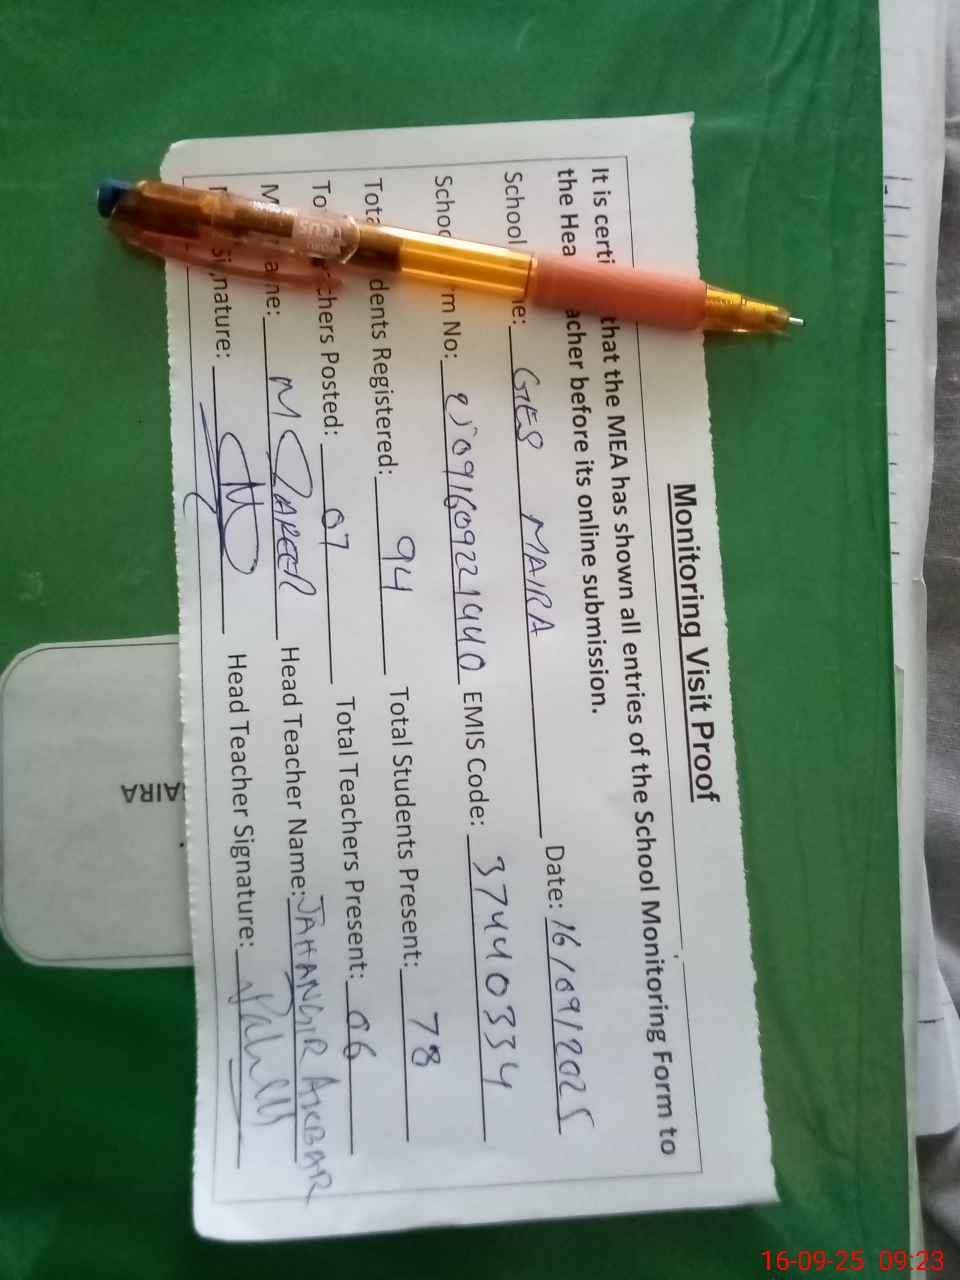 Monitoring Visit Proof
It is certi that the MEA has shown all entries of the School Monitoring Form to
the Hea acher before its online submission.
School ne: GES MAIRA Date: 16/09/2025
Schoo rm No: EMIS Code: 37440334
Tota dents Registered: 94 Total Students Present: 78
To chers Posted: 07 Total Teachers Present: 06
M ame: M Head Teacher Name: JAHANGIR AKBAR
Signature: Head Teacher Signature:
AIRA
16-09-25 09:23